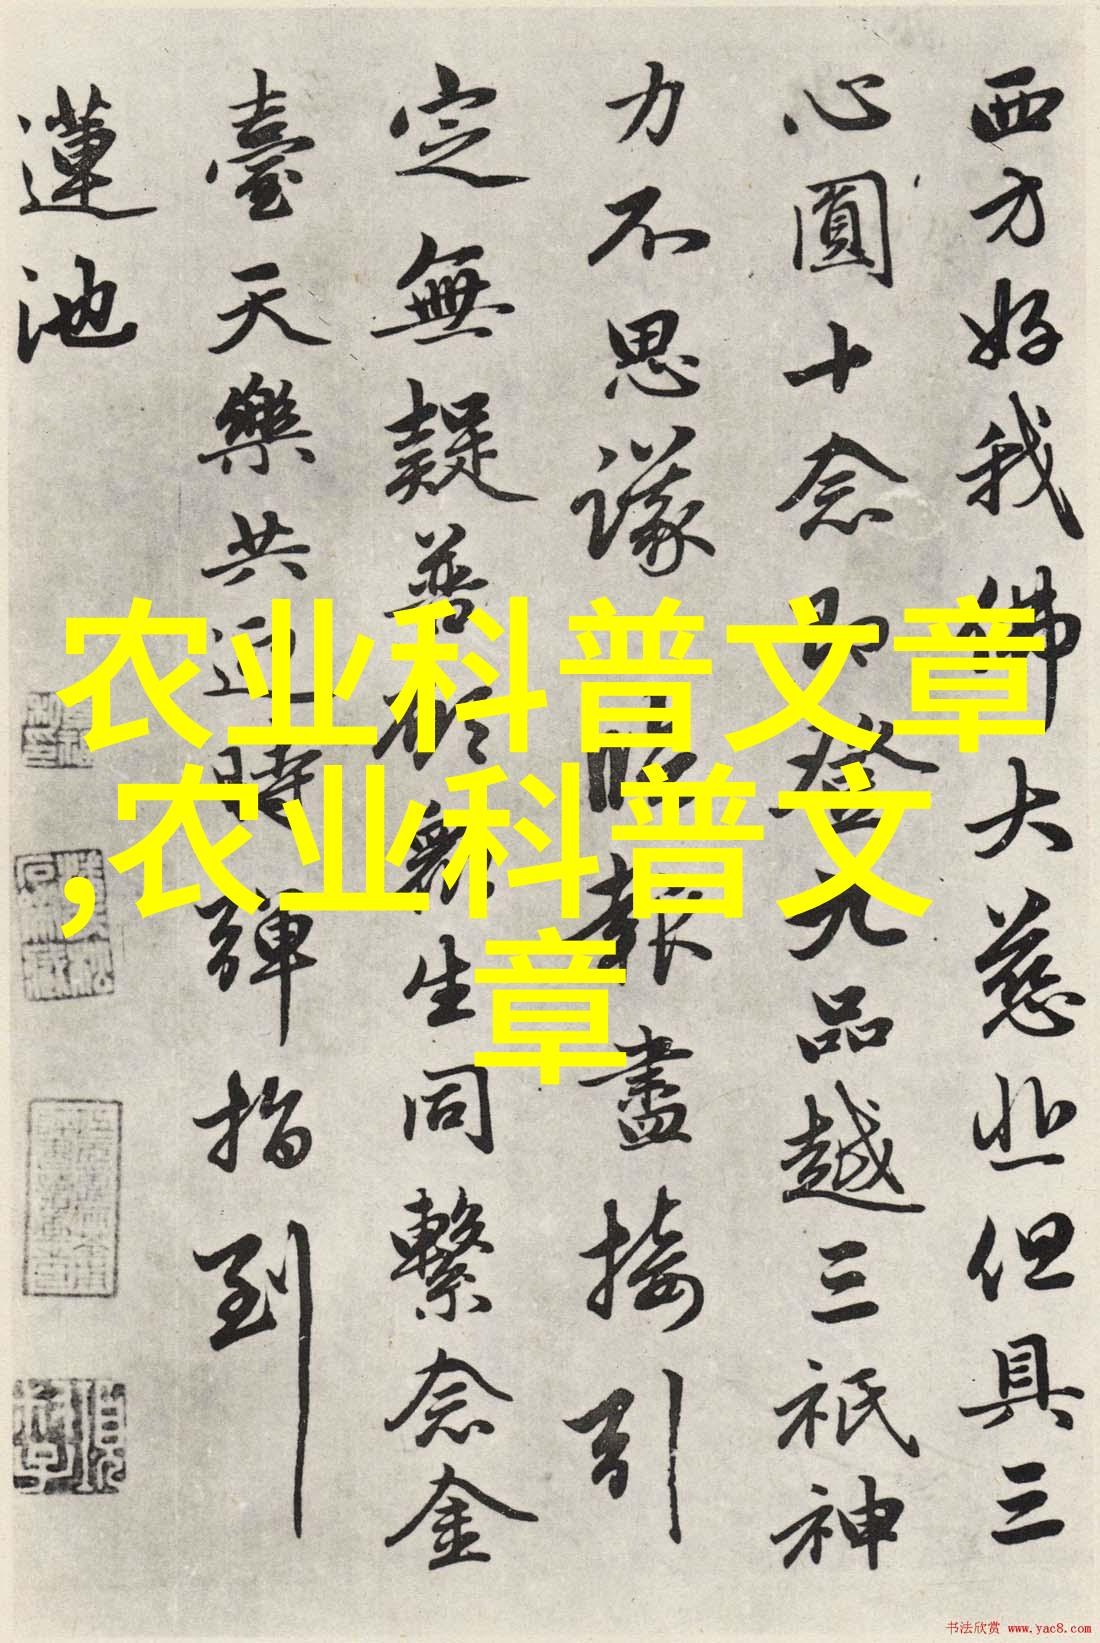 西方好我佛大慈悲但具三
心圓十念即登九品越三祇神
力不思議臨報盡接引
定無疑普願眾生同繫念金
臺天樂共迎時彈指到
蓮池
农业科普文章
,农业科普文
章
书法欣赏 www.yac8.com